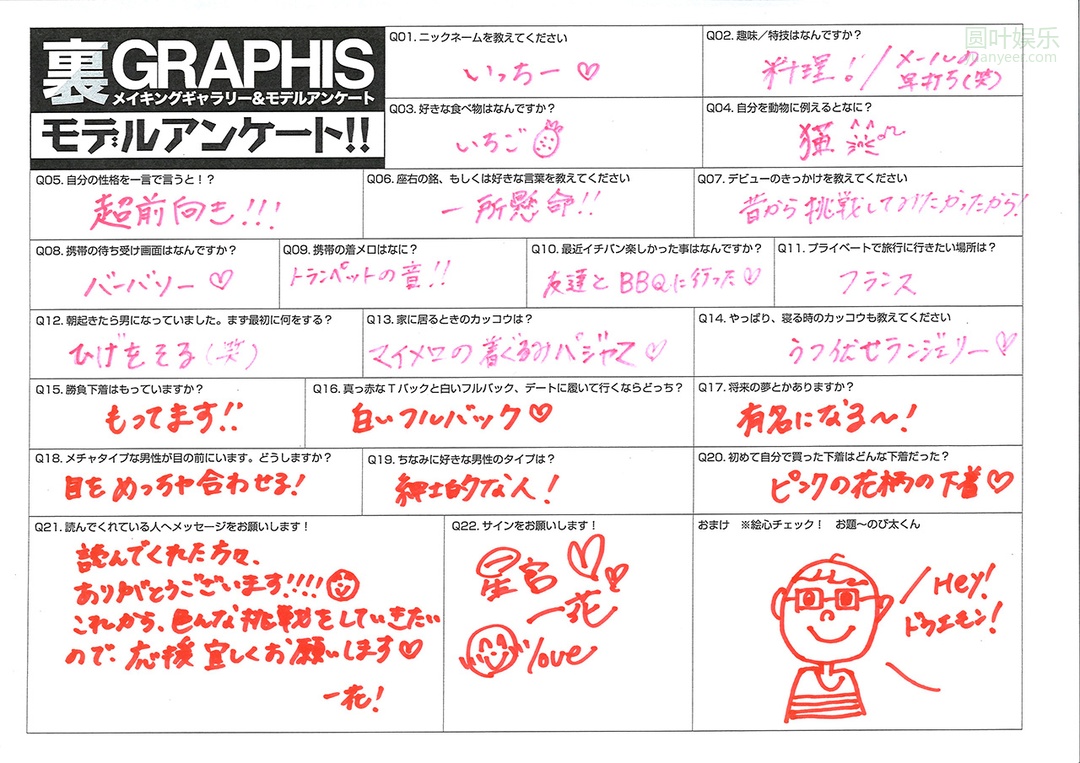 裏GRAPHIS
メイキングギャラリー&モデルアンケート
モデルアンケート!!
圆叶娱乐
Q01. ニックネームを教えてください
いっちー♡
Q02. 趣味/特技はなんですか?
料理!/メールの
早打ち(笑)
Q03. 好きな食べ物はなんですか?
いちご
Q04. 自分を動物に例えるとなに?
猫
Q05. 自分の性格を一言で言うと!?
超前向き!!!
Q06. 座右の銘、もしくは好きな言葉を教えてください
一所懸命!!
Q07. デビューのきっかけを教えてください
昔から挑戦してみたかったから!
Q08. 携帯の待ち受け画面はなんですか?
バーバリー♡
Q09. 携帯の着メロはなに?
トランペットの音!!
Q10. 最近イチバン楽しかった事はなんですか?
友達とBBQに行った♡
Q11. プライベートで旅行に行きたい場所は?
フランス
Q12. 朝起きたら男になっていました。まず最初に何をする?
ひげをそる(笑)
Q13. 家に居るときのカッコウは?
マイメロの着ぐるみパジャマ♡
Q14. やっぱり、寝る時のカッコウも教えてください
うつ伏せランジェリー♡
Q15. 勝負下着はもっていますか?
もってます!!
Q16. 真っ赤なTバックと白いフルバック、デートに履いて行くならどっち?
白いフルバック♡
Q17. 将来の夢とかありますか?
有名になる〜!
Q18. メチャタイプな男性が目の前にいます。どうしますか?
目をめっちゃ合わせる!
Q19. ちなみに好きな男性のタイプは?
紳士的な人!
Q20. 初めて自分で買った下着はどんな下着だった?
ピンクの花柄の下着♡
Q21. 読んでくれている人へメッセージをお願いします!
読んでくれた方々、
ありがとうございます!!!!
これから、色んな挑戦をしていきたい
ので、応援宜しくお願いします♡
一花!
Q22. サインをお願いします!
星宮♡
一花
love
おまけ ※絵心チェック! お題〜のび太くん
Hey!
ドラエモン!